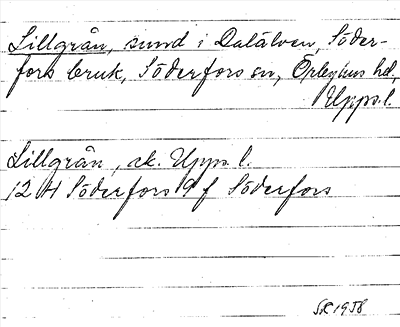 Lillgrån, sund i Dalälven, Söder-
fors bruk, Söderfors sn, Örbyhus hd,
Upps.l.
Lillgrån, ek. Upps. l.
12 H Söderfors 9 f Söderfors
SR 1958